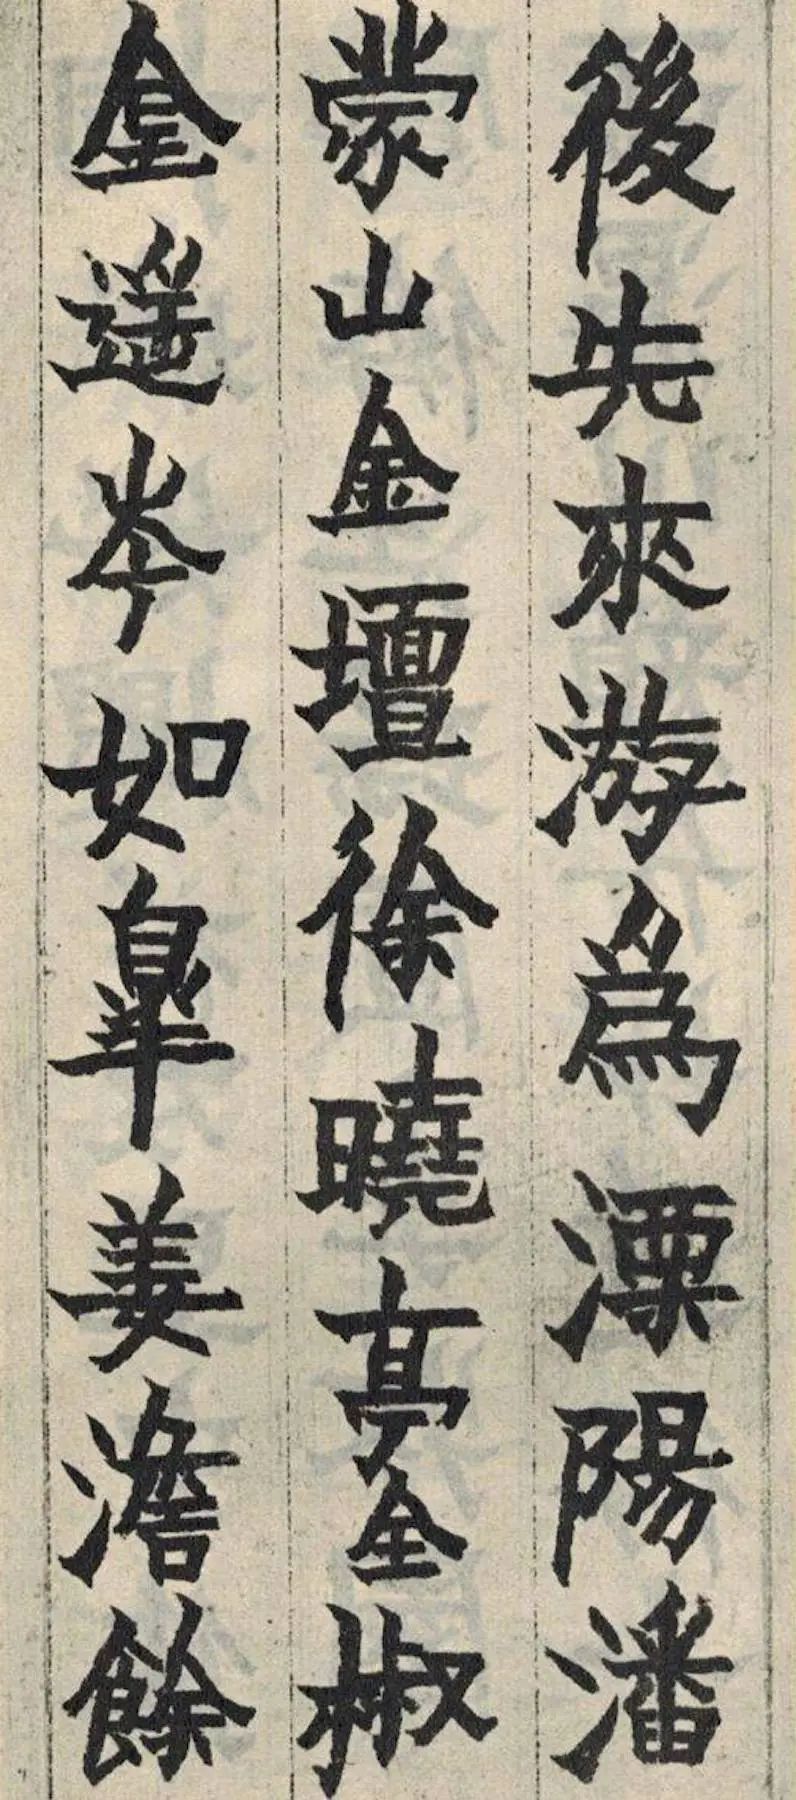 後先來游爲溧陽潘
蒙山金壇徐曉亭全椒
金遥岑如皐姜澹餘